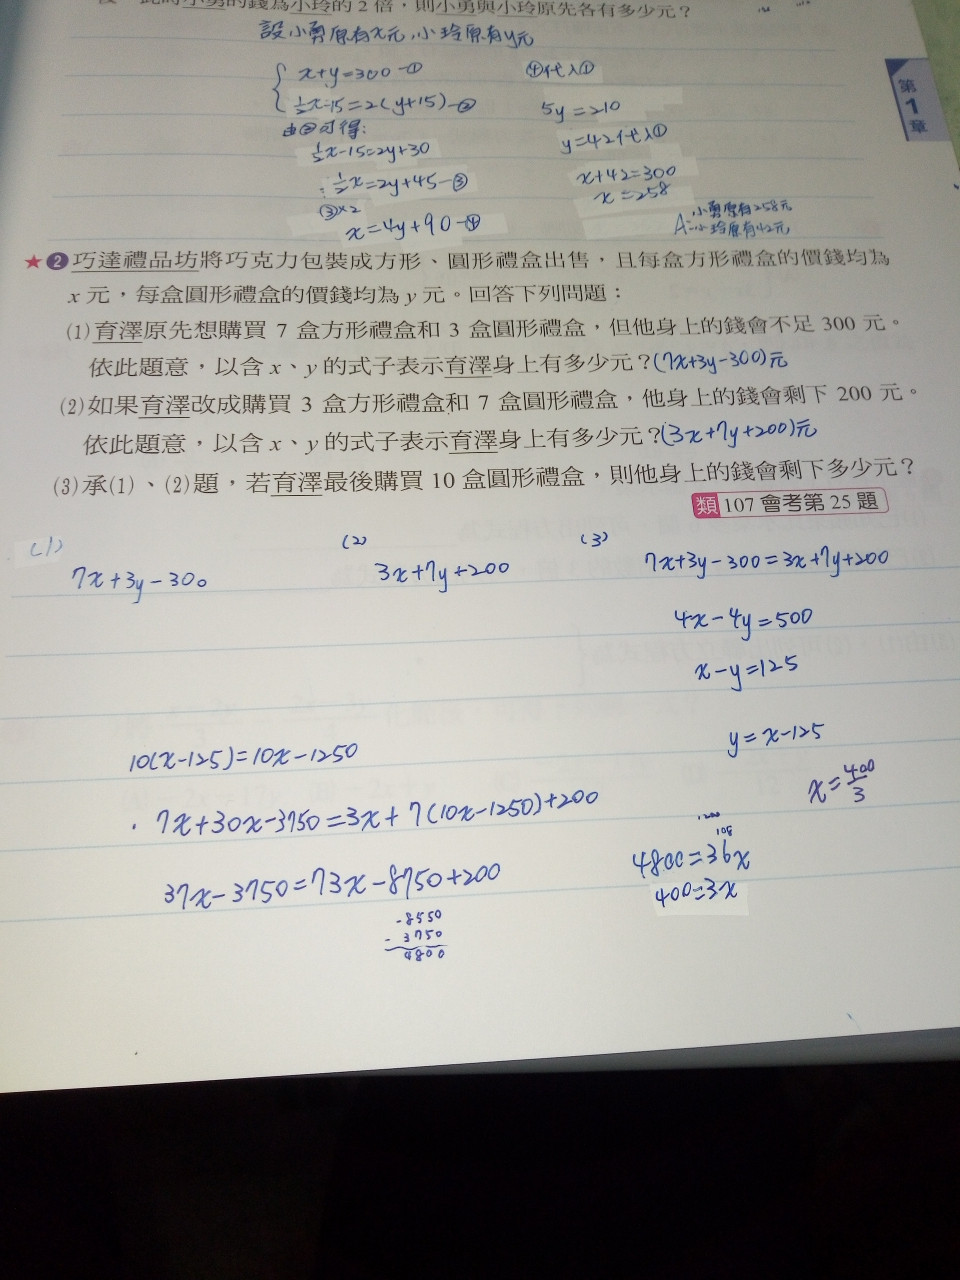 此時小勇的錢為小玲的2倍，則小勇與小玲原先各有多少元？
設小勇原有x元,小玲原有y元
x+y=300-①
½x-15=2(y+15)-②
由②可得:
½x-15=2y+30
½x=2y+45-③
③×2
x=4y+90-④
④代入①
5y=210
y=42代入①
x+42=300
x=258
A:小勇原有258元
小玲原有42元
第1章
★❷巧達禮品坊將巧克力包裝成方形、圓形禮盒出售，且每盒方形禮盒的價錢均為
x元，每盒圓形禮盒的價錢均為y元。回答下列問題：
(1)育澤原先想購買7盒方形禮盒和3盒圓形禮盒，但他身上的錢會不足300元。
依此題意，以含x、y的式子表示育澤身上有多少元？(7x+3y-300)元
(2)如果育澤改成購買3盒方形禮盒和7盒圓形禮盒，他身上的錢會剩下200元。
依此題意，以含x、y的式子表示育澤身上有多少元？(3x+7y+200)元
(3)承(1)、(2)題，若育澤最後購買10盒圓形禮盒，則他身上的錢會剩下多少元？
類 107會考第25題
(1)
7x+3y-300
(2)
3x+7y+200
(3)
7x+3y-300=3x+7y+200
4x-4y=500
x-y=125
y=x-125
x=400/3
10(x-125)=10x-1250
7x+30x-3750=3x+7(10x-1250)+200
37x-3750=73x-8750+200
-8550
- 3750
4800
108
4800=36x
400=3x